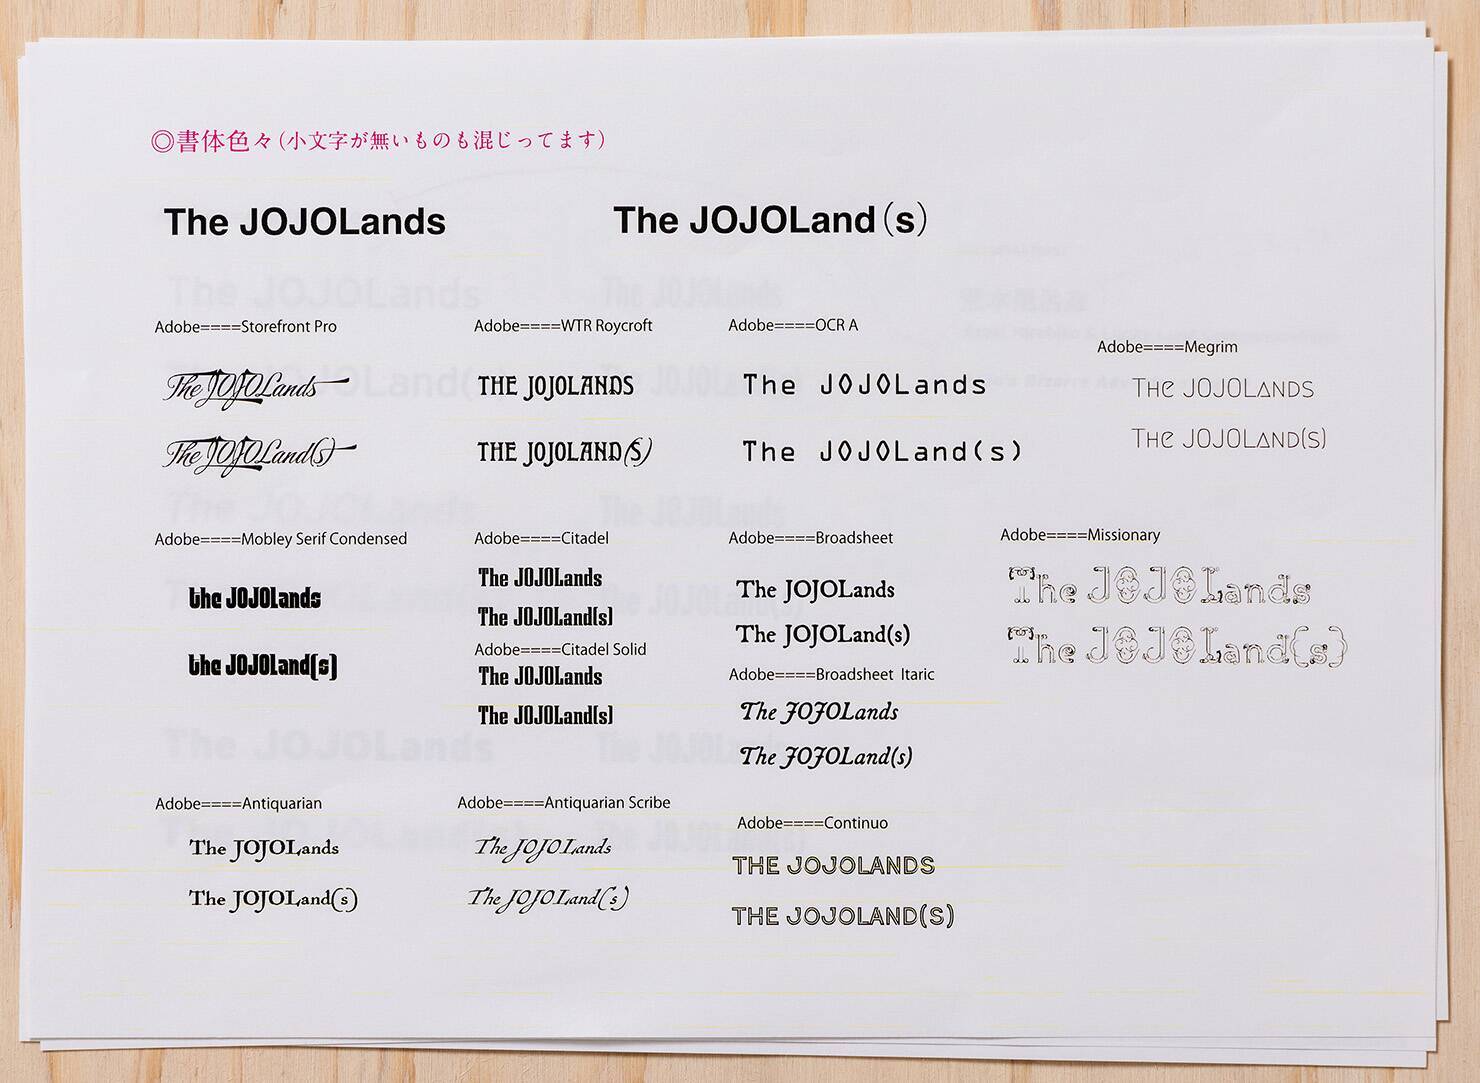 ◎書体色々(小文字が無いものも混じってます)
The JOJOLands
The JOJOLand(s)
Adobe====Storefront Pro
The JOJOLands
The JOJOLand(s)
Adobe====WTR Roycroft
THE JOJOLANDS
THE JOJOLAND(S)
Adobe====OCR A
The JOJOLands
The JOJOLand(s)
Adobe====Megrim
THe JOJOLANDS
THe JOJOLAND(S)
Adobe====Mobley Serif Condensed
the JOJOLands
the JOJOLand(s)
Adobe====Citadel
The JOJOLands
The JOJOLand(s)
Adobe====Citadel Solid
The JOJOLands
The JOJOLand(s)
Adobe====Broadsheet
The JOJOLands
The JOJOLand(s)
Adobe====Broadsheet Itaric
The JOJOLands
The JOJOLand(s)
Adobe====Missionary
The JOJOLands
The JOJOLand(s)
Adobe====Antiquarian
The JOJOLands
The JOJOLand(s)
Adobe====Antiquarian Scribe
The JOJOLands
The JOJOLand(s)
Adobe====Continuo
THE JOJOLANDS
THE JOJOLAND(S)